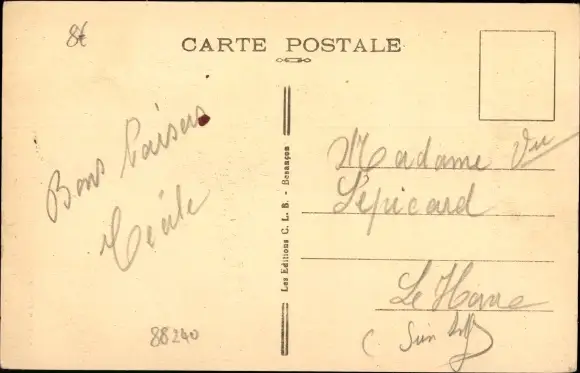 8€
CARTE POSTALE
Bons baisers
Cécile
Les Editions C. L. B. - Besançon
Madame Vu
Lépicard
Le Havre
88240